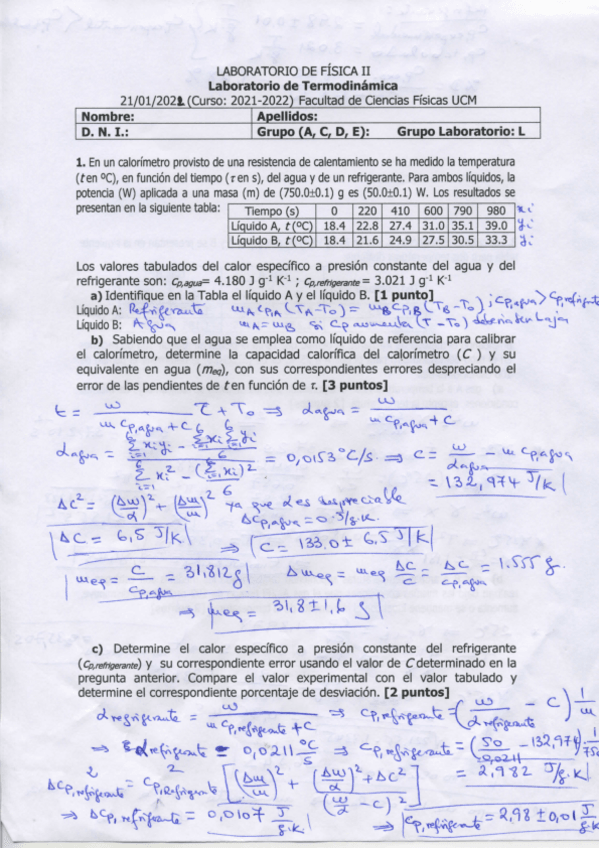 LABORATORIO DE FÍSICA II
Laboratorio de Termodinámica
21/01/2022 (Curso: 2021-2022) Facultad de Ciencias Físicas UCM
Nombre: Apellidos:
D. N. I.: Grupo (A, C, D, E): Grupo Laboratorio: L
1. En un calorímetro provisto de una resistencia de calentamiento se ha medido la temperatura
(t en ºC), en función del tiempo (τ en s), del agua y de un refrigerante. Para ambos líquidos, la
potencia (W) aplicada a una masa (m) de (750.0±0.1) g es (50.0±0.1) W. Los resultados se
presentan en la siguiente tabla:
Tiempo (s) 0 220 410 600 790 980 xi
Líquido A, t (ºC) 18.4 22.8 27.4 31.0 35.1 39.0 yi
Líquido B, t (ºC) 18.4 21.6 24.9 27.5 30.5 33.3 yi
Los valores tabulados del calor específico a presión constante del agua y del
refrigerante son: cp,agua= 4.180 J g⁻¹ K⁻¹ ; cp,refrigerante = 3.021 J g⁻¹ K⁻¹
a) Identifique en la Tabla el líquido A y el líquido B. [1 punto]
Líquido A: Refrigerante mA cp,A (TA-T0) = mB cp,B (TB-T0) ; cp,agua > cp,refrigerante
Líquido B: Agua mA = mB si cp aumenta (T-T0) debería bajar
b) Sabiendo que el agua se emplea como líquido de referencia para calibrar
el calorímetro, determine la capacidad calorífica del calorímetro (C ) y su
equivalente en agua (meq), con sus correspondientes errores despreciando el
error de las pendientes de t en función de τ. [3 puntos]
t = W / (m cp,agua + C) τ + T0 ⇒ αagua = W / (m cp,agua + C)
αagua = (Σ xi yi - Σ xi Σ yi / 6) / (Σ xi² - (Σ xi)² / 6) = 0,0153 ºC/s ⇒ C = W/αagua - m cp,agua
= 132,974 J/K
ΔC² = (ΔW/α)² + (Δm/m)² ya que α es despreciable
Δcp,agua = 0 J/g.K.
ΔC = 6,5 J/K ⇒ C = 133,0 ± 6,5 J/K
meq = C / cp,agua = 31,812 g Δmeq = meq ΔC/C = ΔC / cp,agua = 1.555 g.
⇒ meq = 31,8 ± 1,6 g
c) Determine el calor específico a presión constante del refrigerante
(cp,refrigerante) y su correspondiente error usando el valor de C determinado en la
pregunta anterior. Compare el valor experimental con el valor tabulado y
determine el correspondiente porcentaje de desviación. [2 puntos]
αrefrigerante = W / (m cp,refrigerante + C) ⇒ cp,refrigerante = (W/αrefrigerante - C) 1/m
⇒ αrefrigerante = 0,0211 ºC/s ⇒ cp,refrigerante = (50/0,0211 - 132,974) 1/750
= 2,982 J/g.K
Δcp,refrigerante² = cp,refrigerante² [(Δm/m)² + ((ΔW/α)² + ΔC²) / (W/α - C)²]
⇒ Δcp,refrigerante = 0,0107 J/g.K ⇒ cp,refrigerante = 2,98 ± 0,01 J/g.K